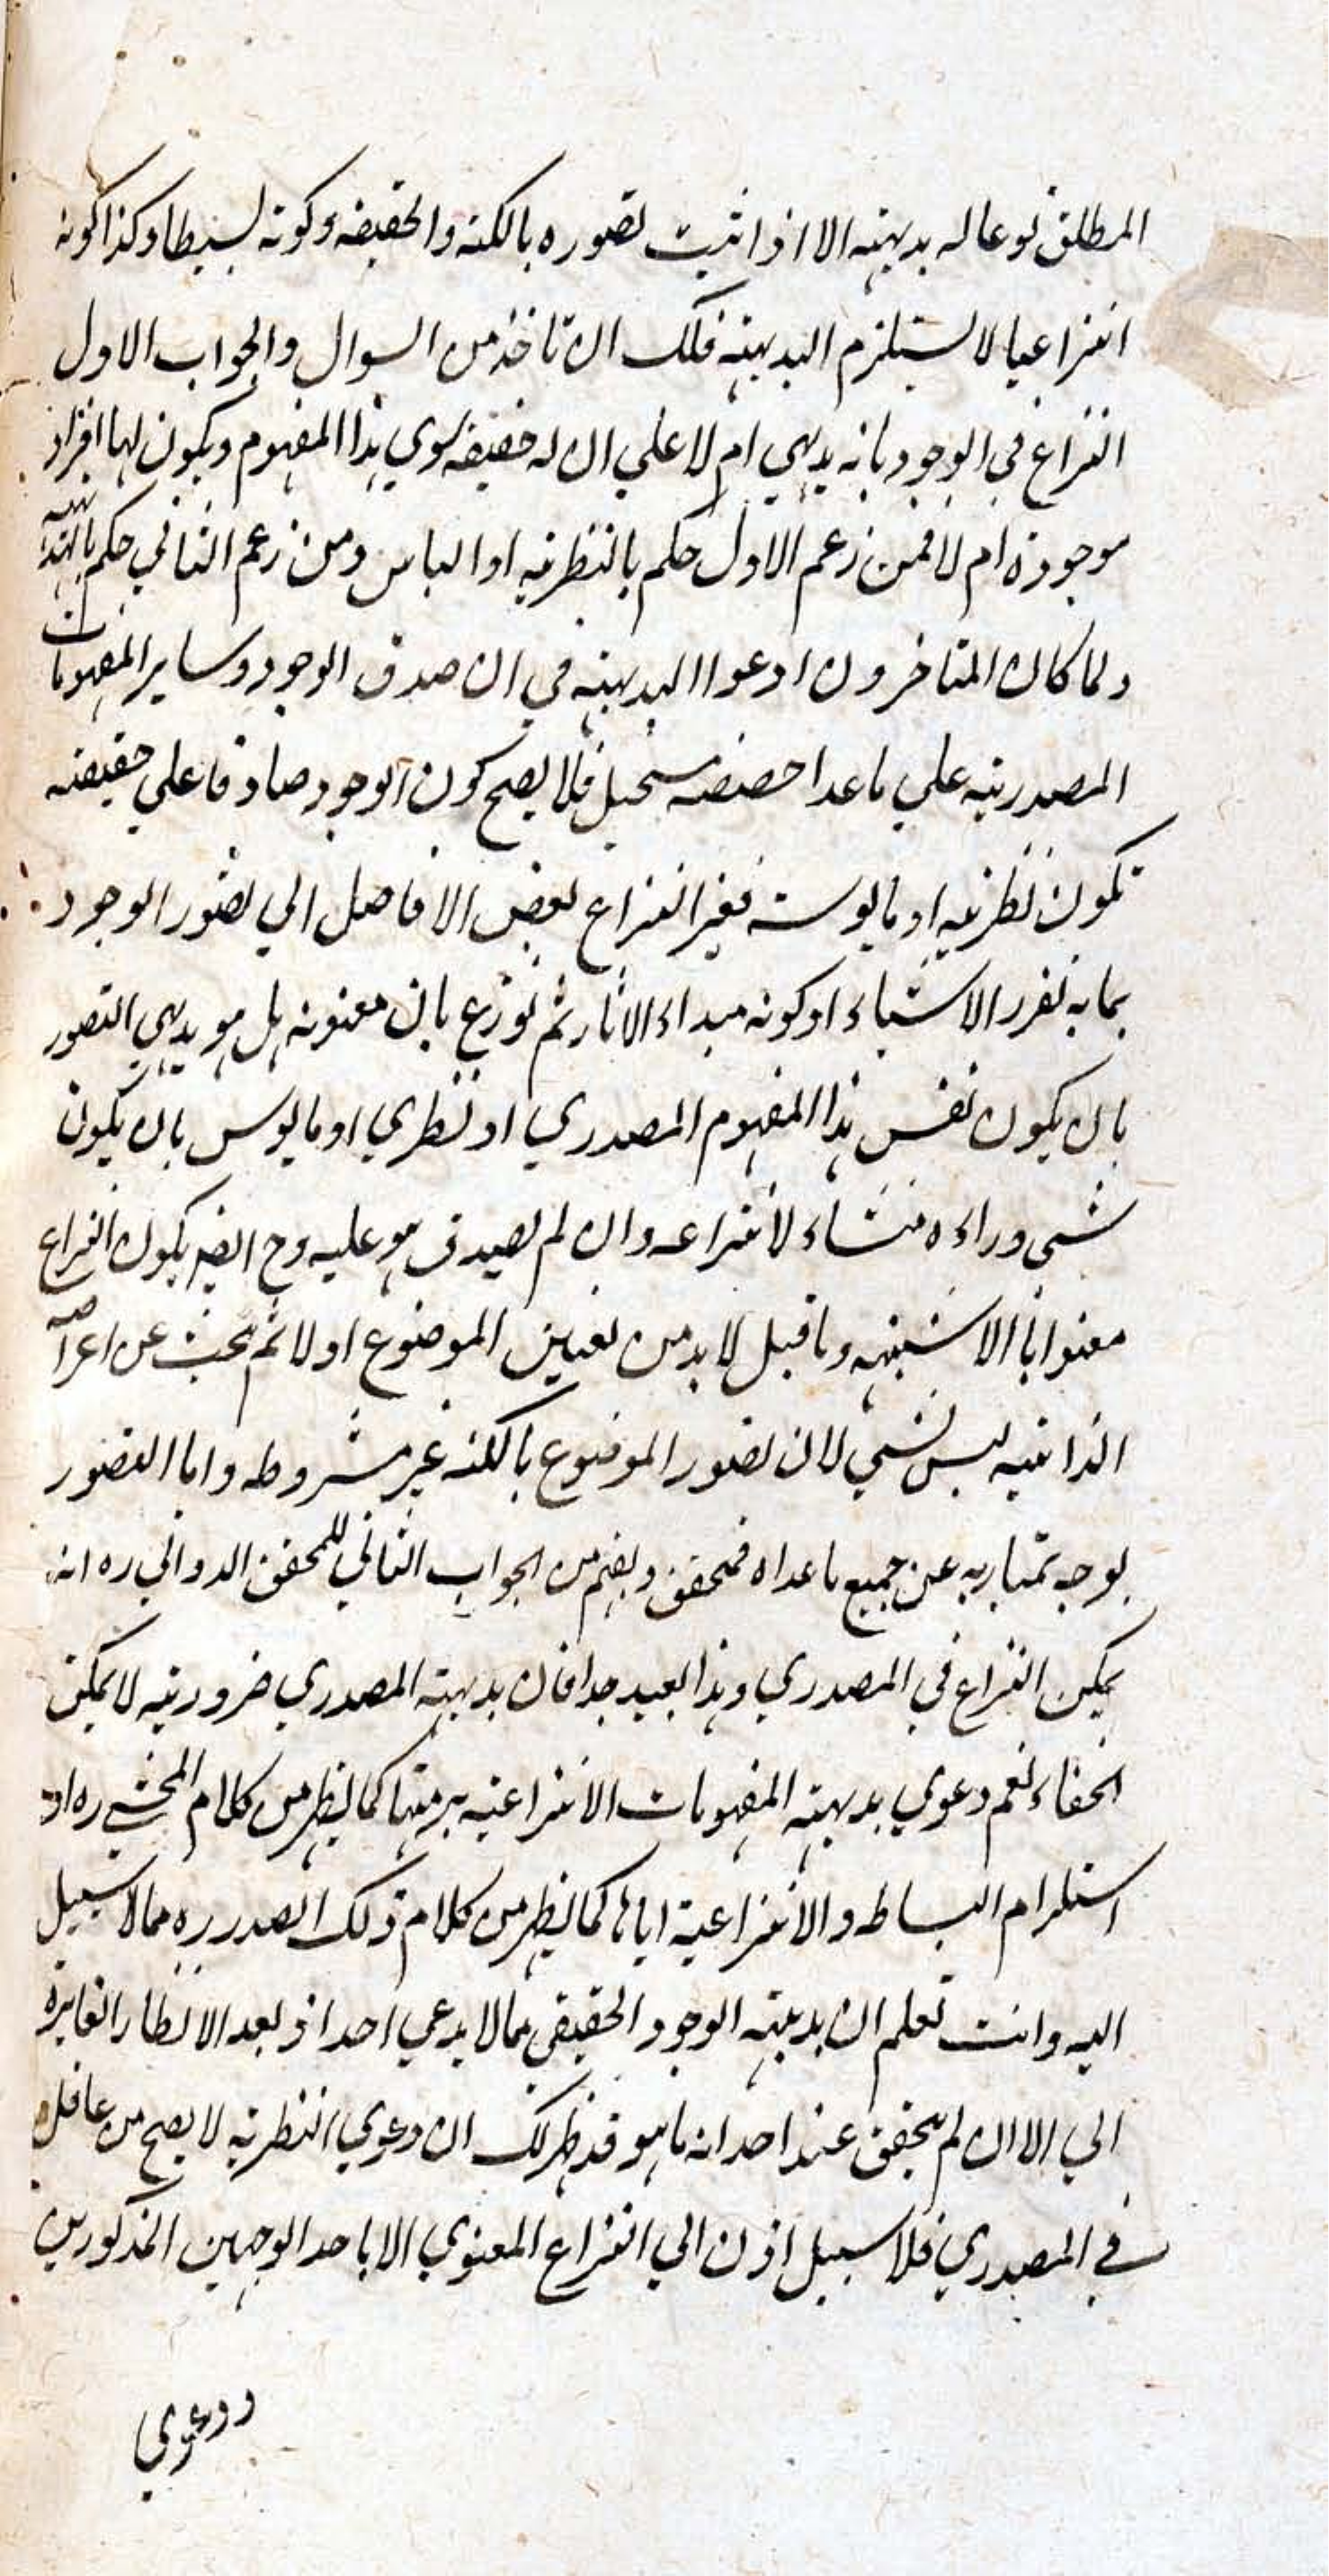 المطلق نوعا له بديهته الا اذا ثبت تصوره بالكنه والحقيقه وكونه بسيطا وكذا كونه
انتزاعيا لا يستلزم البديهته فلك ان تاخذ من السوال والجواب الاول
النزاع في الوجود بانه بديهي ام لا علي ان له حقيقه سوي هذا المفهوم ويكون لها افراد
موجودة ام لا فمن زعم الاول حكم بالنظريه او الياس ومن زعم الثاني حكم بالبديهيه
ولما كان المتاخرون ادعوا البديهته في ان صدق الوجود وساير المفهومات
المصدريه علي ما عدا حصصه مستحيل فلا يصح كون الوجود صادقا علي حقيقته
تكون نظريه او مايوسه فغير النزاع بعض الافاضل الي تصور الوجود
بما به تقرر الاشياء او كونه مبداء الاثار ثم نوزع بان معنونه هل هو بديهي التصور
بان يكون نفس هذا المفهوم المصدري او نظري او مايوس بان يكون
شي وراءه منشاء لانتزاعه وان لم يصدق هو عليه وح ايضا يكون النزاع
معنوانا الا شبيهه وما قيل لا بد من تعيين الموضوع اولا ثم يبحث عن اعراضه
الذاتيه ليس بشي لان تصور الموضوع بالكنه غير مشروطه واما التصور
بوجه يمتاز به عن جميع ما عداه فمتحقق ويفهم من الجواب الثاني للمحقق الدواني ره انه
يمكن النزاع في المصدري وهذا بعيد جدا فان بديهته المصدري ضروريه لا يمكن
الخفاء نعم دعوي بديهته المفهومات الانتزاعيه برمتها كما يظهر من كلام المحشي ره او
استلزام البساطه والانتزاعية اياها كما يظهر من كلام ذلك الصدر ره مما لا سبيل
اليه وانت تعلم ان بديهته الوجود الحقيقي مما لا يدعي احد اذ بعد الانظار الغايرة
الي الا ان لم يتحقق عند احد انه ما هو قد ظهر لك ان دعوي النظريه لا يصح من عاقل
في المصدري فلا سبيل اذن الي النزاع المعنوي الا باحد الوجهين المذكورين
ودعوي